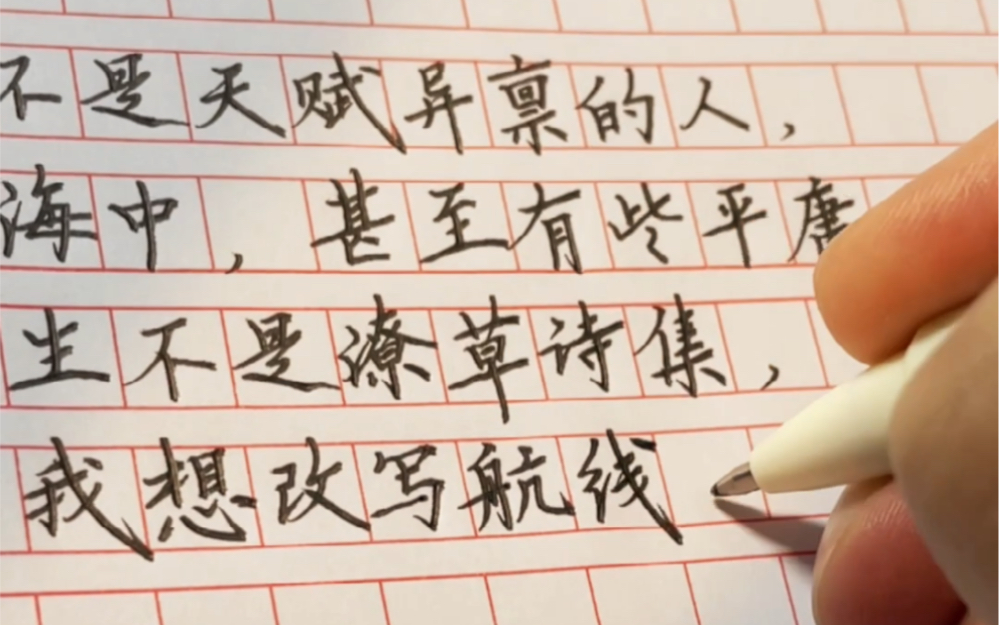 不是天赋异禀的人，
海中，甚至有些平庸
生不是潦草诗集，
我想改写航线